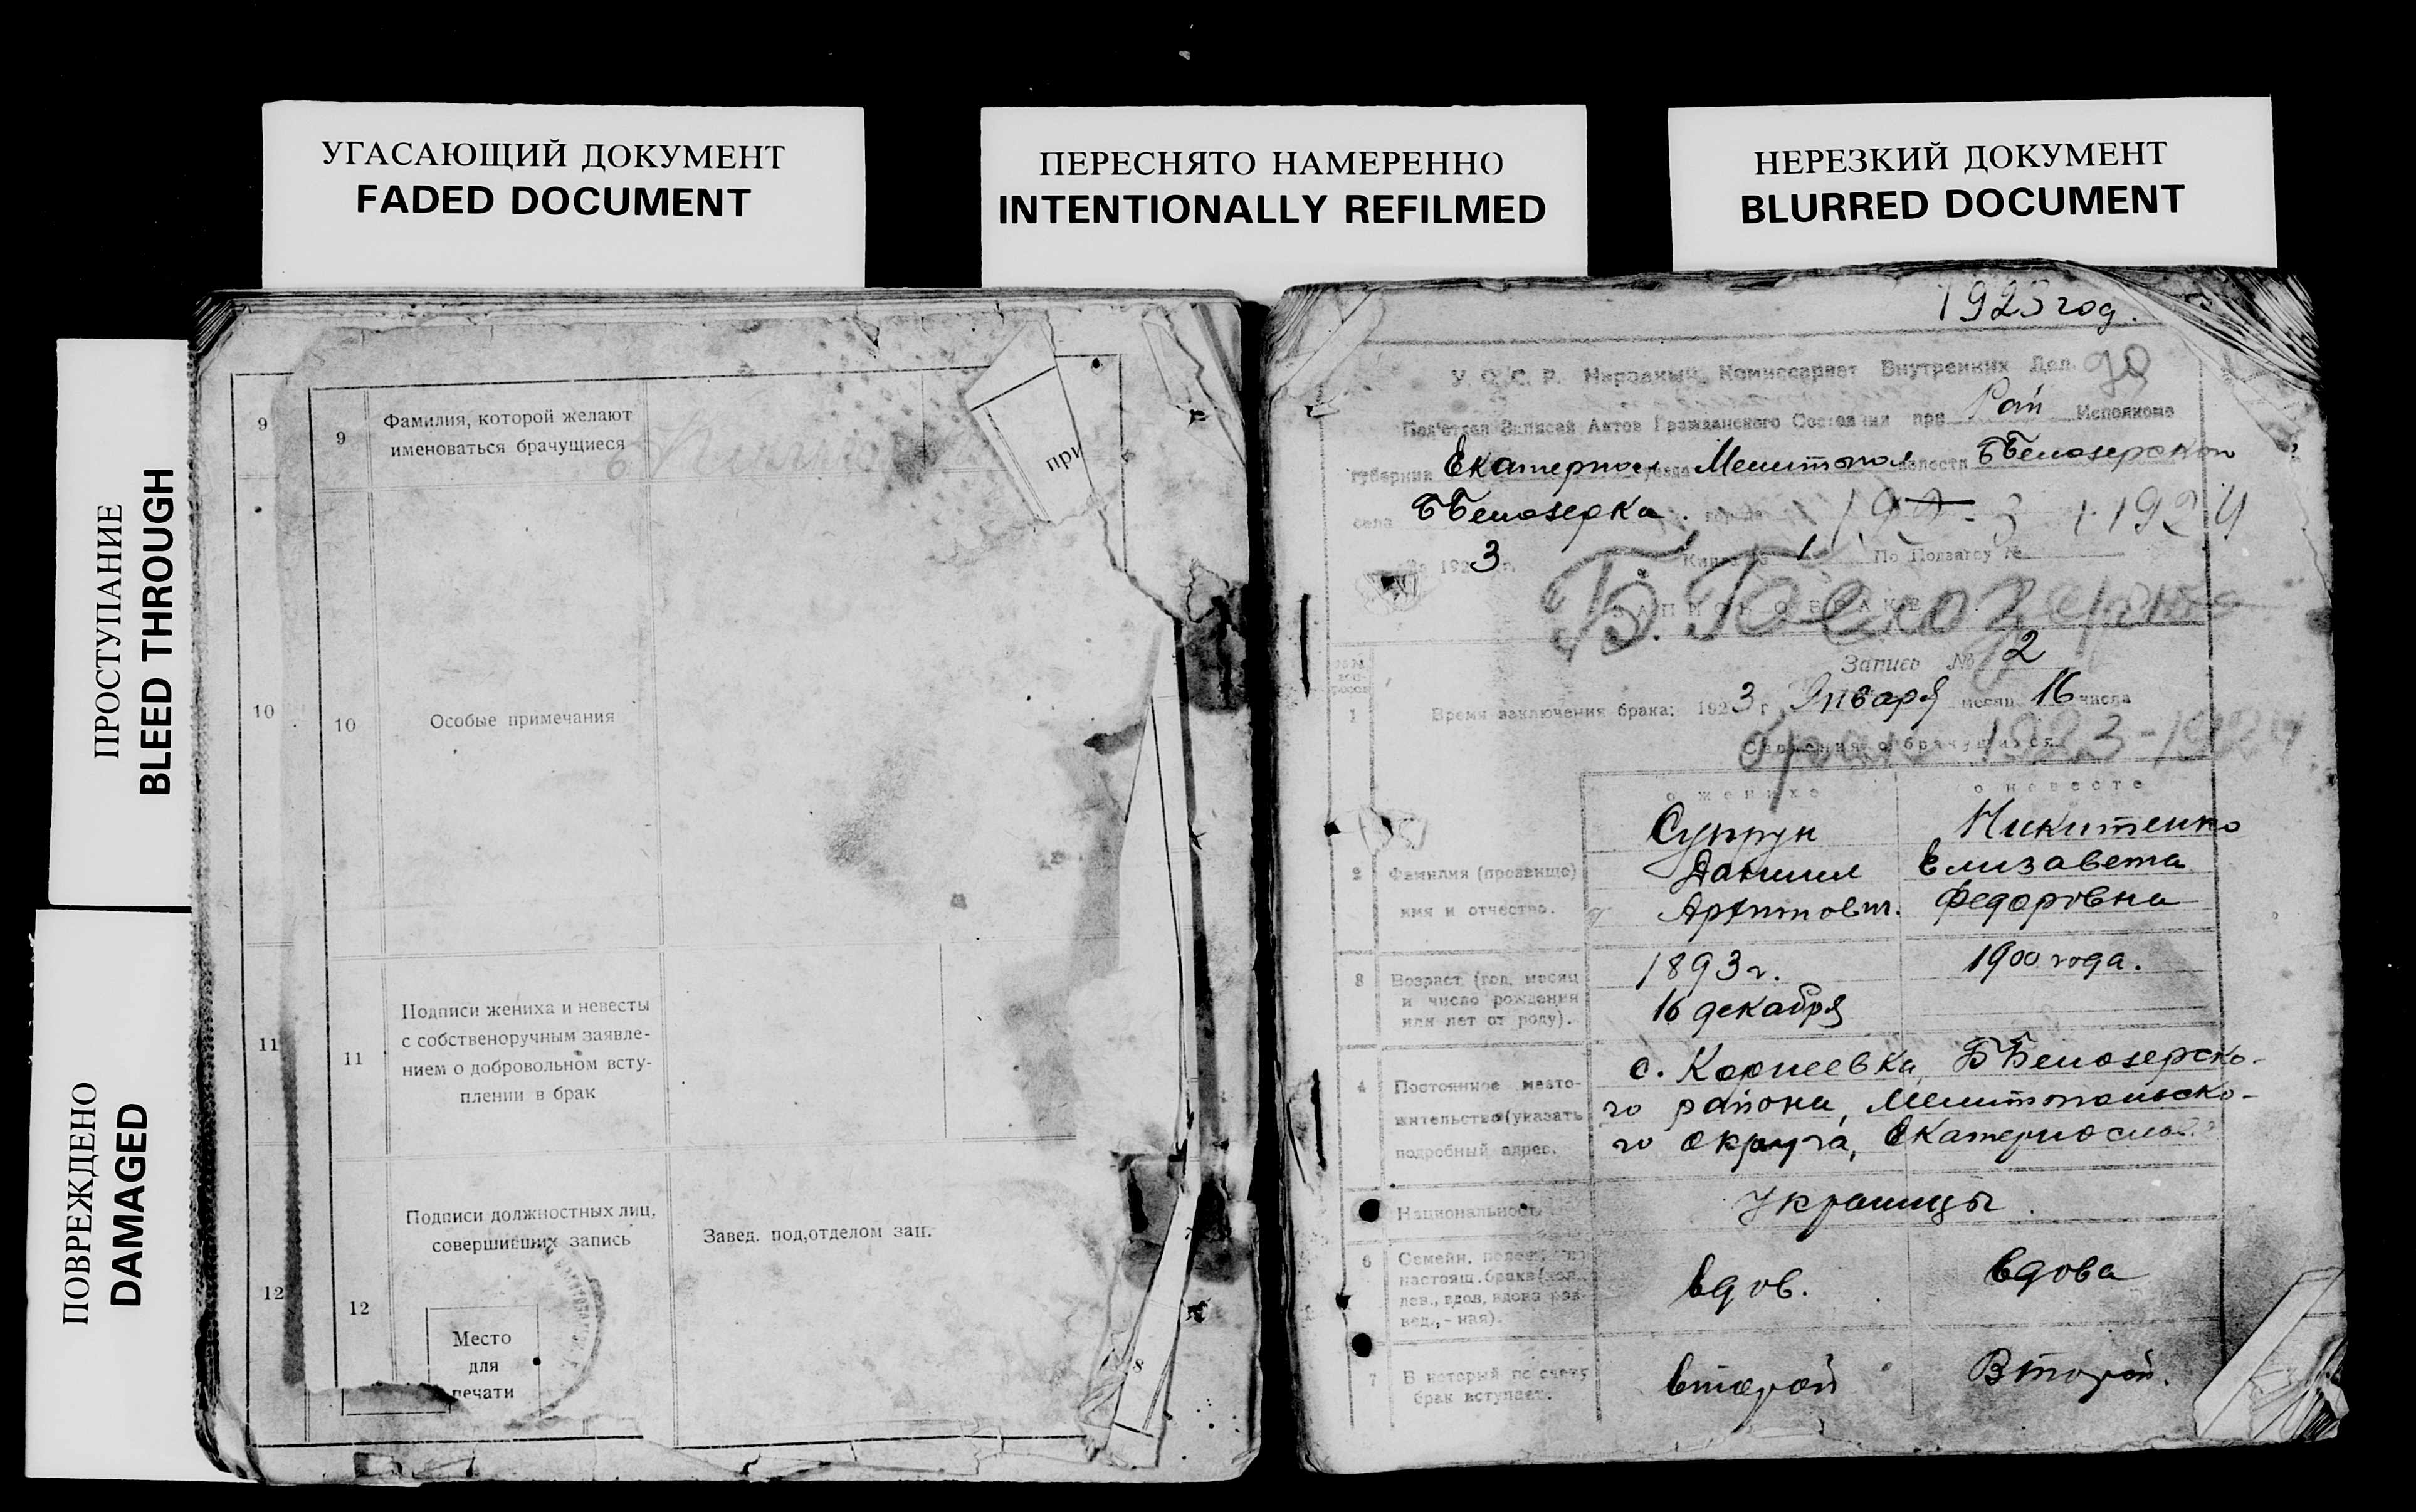 УГАСАЮЩИЙ ДОКУМЕНТ
FADED DOCUMENT
ПЕРЕСНЯТО НАМЕРЕННО
INTENTIONALLY REFILMED
НЕРЕЗКИЙ ДОКУМЕНТ
BLURRED DOCUMENT
ПРОСТУПАНИЕ
BLEED THROUGH
ПОВРЕЖДЕНО
DAMAGED
9
9
Фамилия, которой желают
именоваться брачущиеся
при
10
10
Особые примечания
11
11
Подписи жениха и невесты
с собственоручным заявле-
нием о добровольном всту-
плении в брак
12
12
Подписи должностных лиц,
совершивших запись
Завед. под,отделом зап.
Место
для
печати
8
1923 год.
У. С. С. Р. Народный Комиссариат Внутренних Дел.
Под'отдел Записей Актов Гражданского Состояния при Рай Исполкоме
губернии Екатеринос. уезда Мелитопол. волости ББелозерской
села ББелозерка. города 1923 1924
За 1923 г. Книга № 1 По Порядку №
ЗАПИСЬ О БРАКЕ
Б. Белозерка
Запись № 2
1
Время заключения брака: 1923 г. Января месяц 16 числа
Сведения о брачущихся
брак 1923-1924
о женихе
о невесте
2
Фамилия (прозвище)
имя и отчество.
Супрун
Даниил
Архипович.
Никитенко
Елизавета
Федоровна
3
Возраст (год, месяц
и число рождения
или лет от роду).
1893 г.
16 декабря
1900 года.
4
Постоянное место-
жительство (указать
подробный адрес.
с. Корнеевка, ББелозерско-
го района, Мелитопольско-
го округа, Екатериослав.
Национальность
Украинцы.
6
Семейн. полож. до
настоящ. брака (хол.,
дев., вдов, вдова раз-
вед., - ная).
вдов.
вдова
7
В который по счету
брак вступает.
второй
Второй.